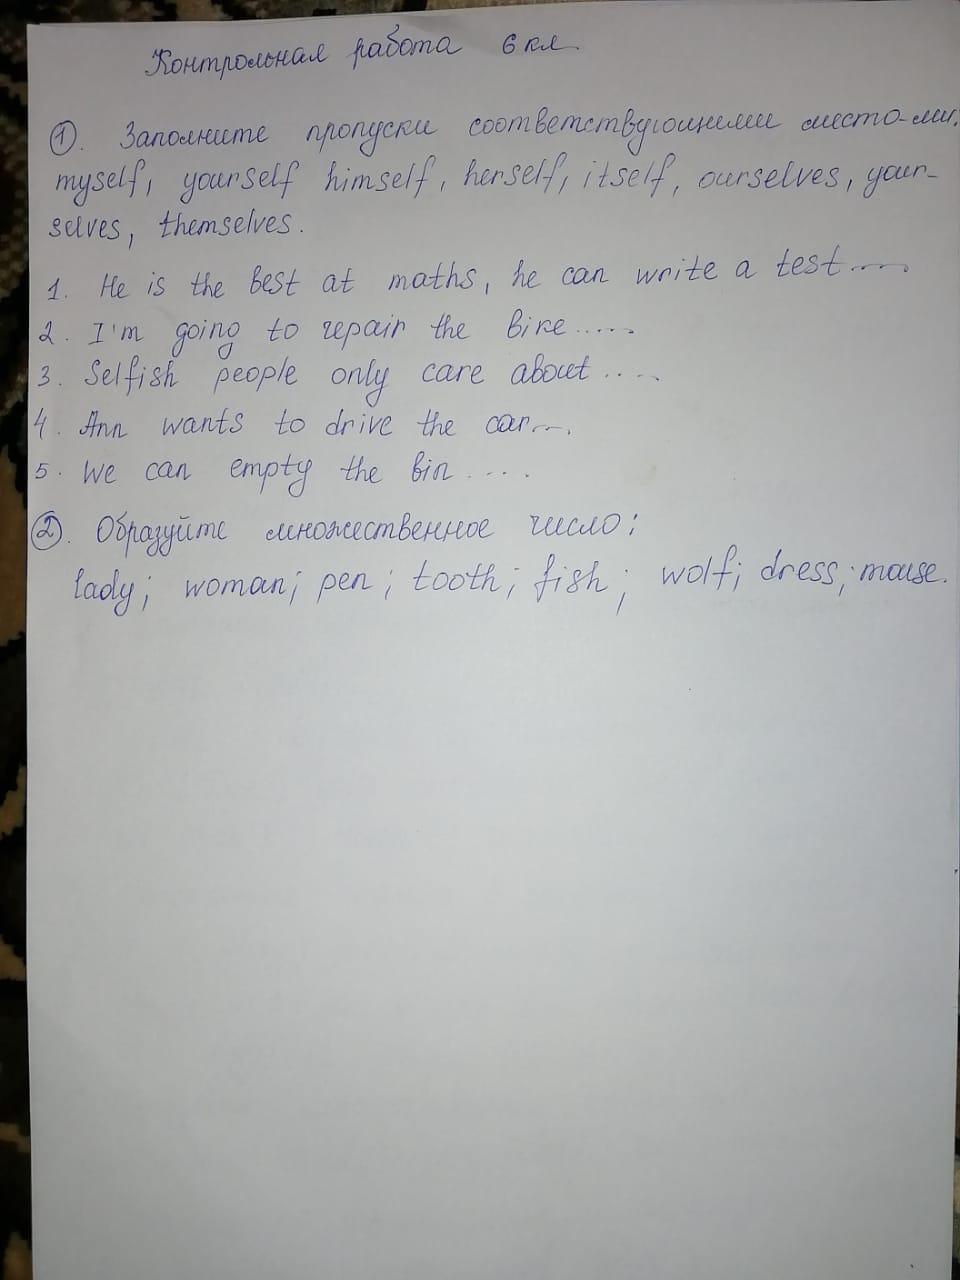 Контрольная работа 6 кл.
1. Заполните пропуски соответствующими место-ми.
myself, yourself himself, herself, itself, ourselves, your-
selves, themselves.
1. He is the best at maths, he can write a test.....
2. I'm going to repair the bike......
3. Selfish people only care about.....
4. Ann wants to drive the car....
5. We can empty the bin.....
2. Образуйте множественное число:
lady; woman; pen; tooth; fish; wolf; dress; mouse.